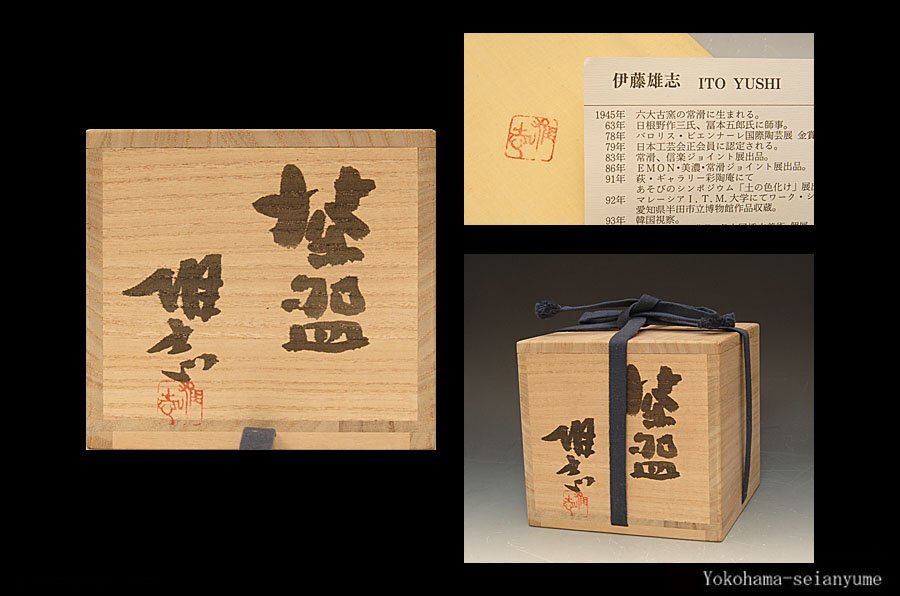 茶盌
雄志
雄志
伊藤雄志 ITO YUSHI
1945年 六大古窯の常滑に生まれる。
63年 日根野作三氏、冨本五郎氏に師事。
78年 バロリス・ビエンナーレ国際陶芸展 金賞
79年 日本工芸会正会員に認定される。
83年 常滑、信楽ジョイント展出品。
86年 EMON・美濃・常滑ジョイント展出品。
91年 萩・ギャラリー彩陶庵にて
あそびのシンポジウム「土の色化け」展出
92年 マレーシアI.T.M.大学にてワーク・シ
愛知県半田市立博物館作品収蔵。
93年 韓国視察。
雄志
茶盌
雄志
雄志
Yokohama-seianyume